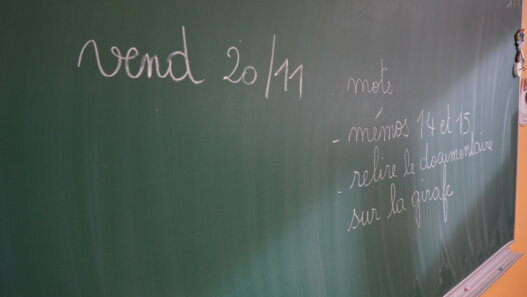 vend 20/11
- mots
- mémos 14 et 15
- relire le documentaire
sur la girafe